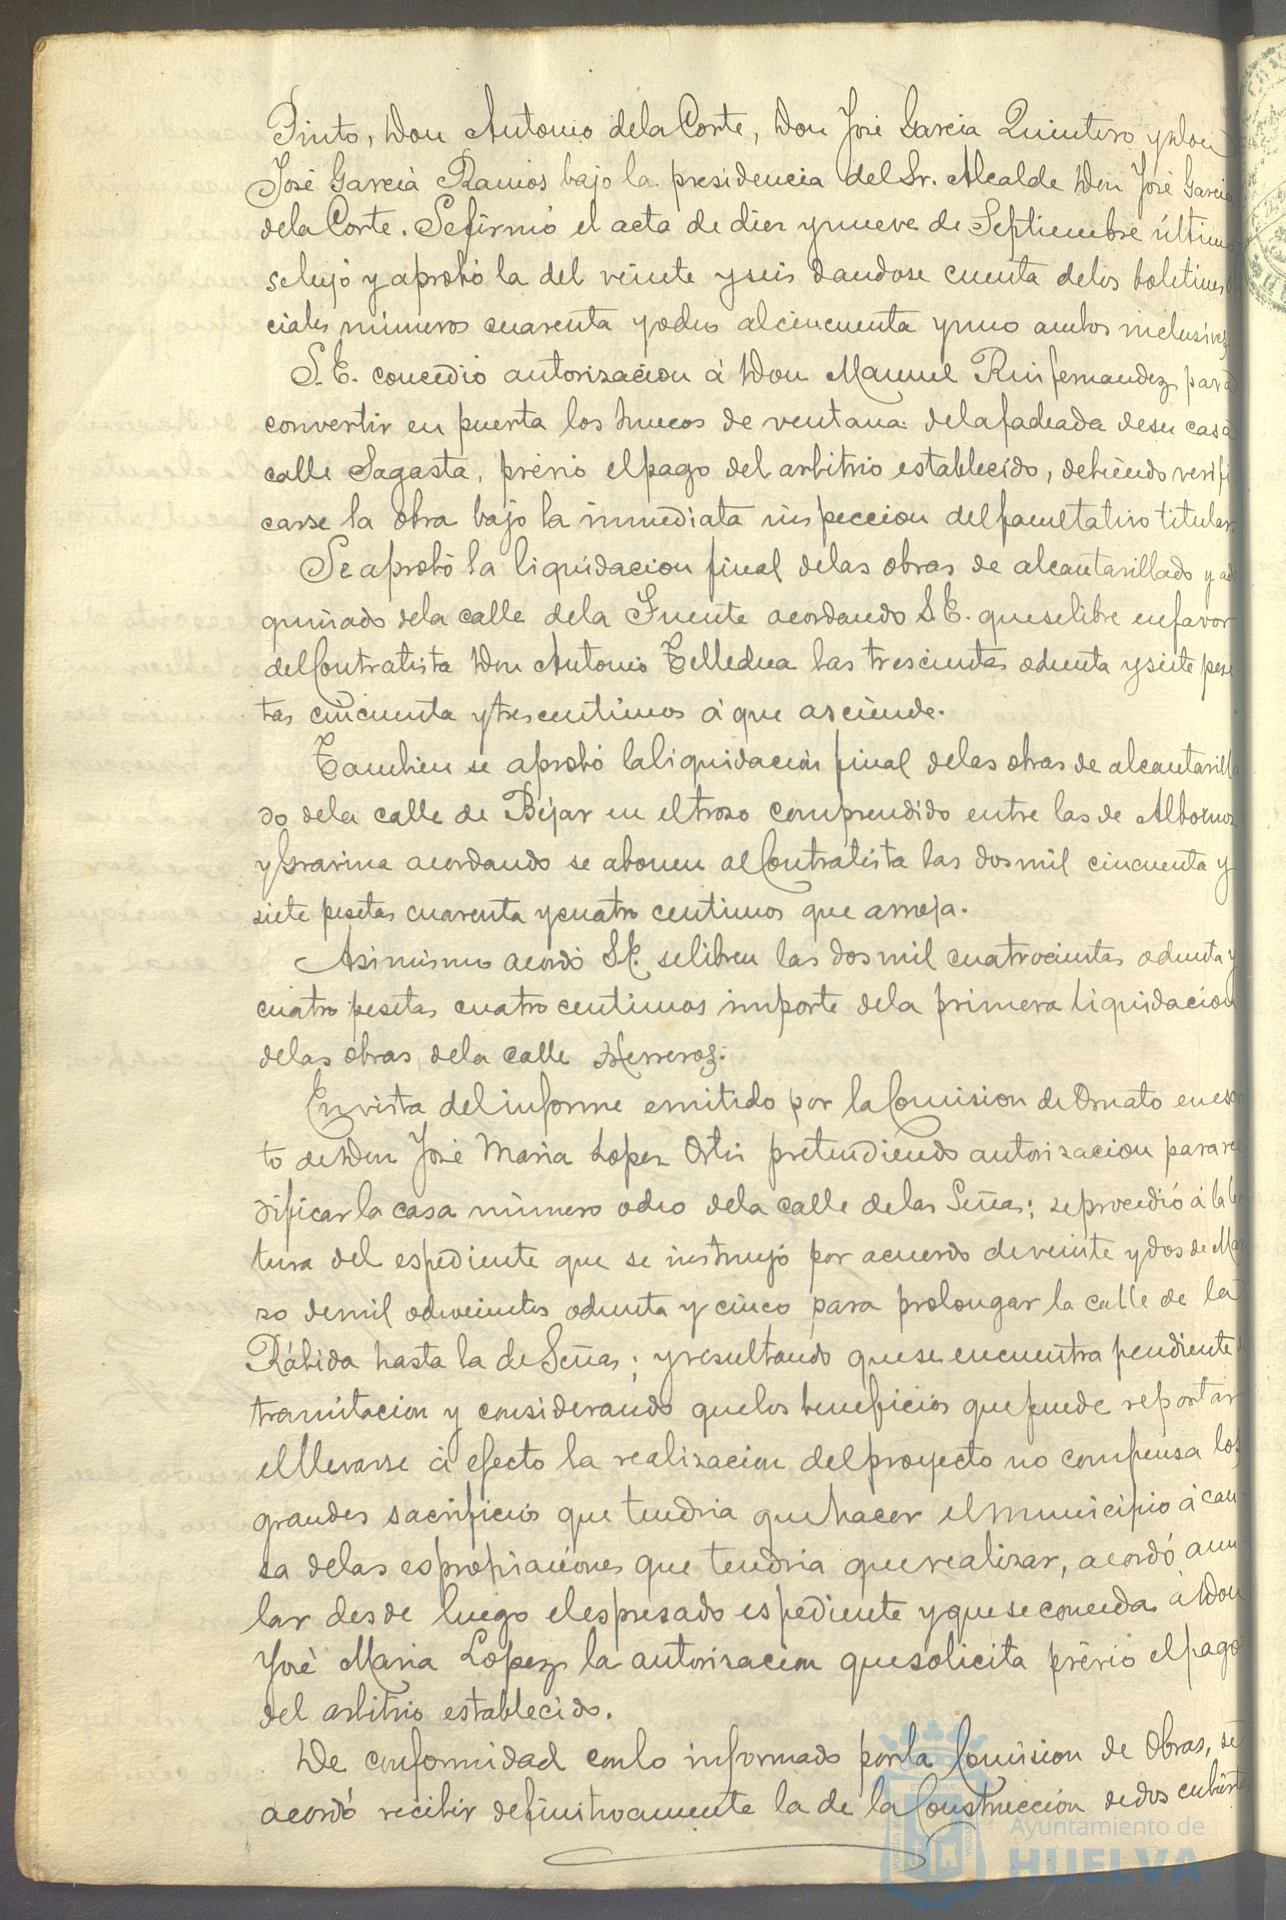 Pinto, Don Antonio dela Corte, Don José Garcia Quintero y don
José Garcia Ramos bajo la presidencia del Sr. Alcalde Don José Garcia
dela Corte. Se firmó el acta de diez y nueve de Septiembre último
se leyó y aprobó la del veinte y seis dandose cuenta delos boletines ofi
ciales números cuarenta y ocho al cincuenta y uno ambos inclusives
S. E. concedió autorizacion á Don Manuel Ruifernandez para
convertir en puerta los huecos de ventana dela fachada desu casa
calle Sagasta, prévio el pago del arbitrio establecido, debiendo verifi
carse la obra bajo la inmediata inspeccion del facultativo titular.
Se aprobó la liquidacion final delas obras de alcantarillado y ado
quinado dela calle dela Fuente acordando S. E. que se libre en favor
del Contratista Don Antonio Tellechea las trescientas ochenta y siete pese
tas cincuenta y tres centimos á que asciende.
Tambien se aprobó la liquidacion final delas obras de alcantarilla
do dela calle de Béjar en el trozo comprendido entre las de Albornoz
y Gravina acordando se abonen al Contratista las dos mil cincuenta y
siete pesetas cuarenta y cuatro centimos que arroja.
Asimismo acordó S. E. se libren las dos mil cuatrocientas ochenta y
cuatro pesetas cuatro centimos importe dela primera liquidacion
delas obras dela calle Herreros.
En vista del informe emitido por la Comision de Ornato en escri
to de Don José Maria Lopez Ortiz pretendiendo autorizacion para ree
dificar la casa número ocho dela calle delas Señas; se procedió á la lec
tura del espediente que se instruyó por acuerdo de veinte y dos de Mar
zo de mil ochocientos ochenta y cinco para prolongar la calle de la
Rábida hasta la de Señas; y resultando que se encuentra pendiente de
tramitacion y considerando que los beneficios que puede reportar
el llevarse á efecto la realizacion del proyecto no compensa los
grandes sacrificios que tendria que hacer el municipio á cau
sa delas espropiaciones que tendria que realizar, acordó anu
lar desde luego el espresado espediente y que se conceda á Don
José Maria Lopez la autorizacion que solicita prévio el pago
del arbitrio establecido.
De conformidad con lo informado por la Comision de Obras, se
acordó recibir definitivamente la de la Construccion de dos cubiertas
Ayuntamiento de
HUELVA